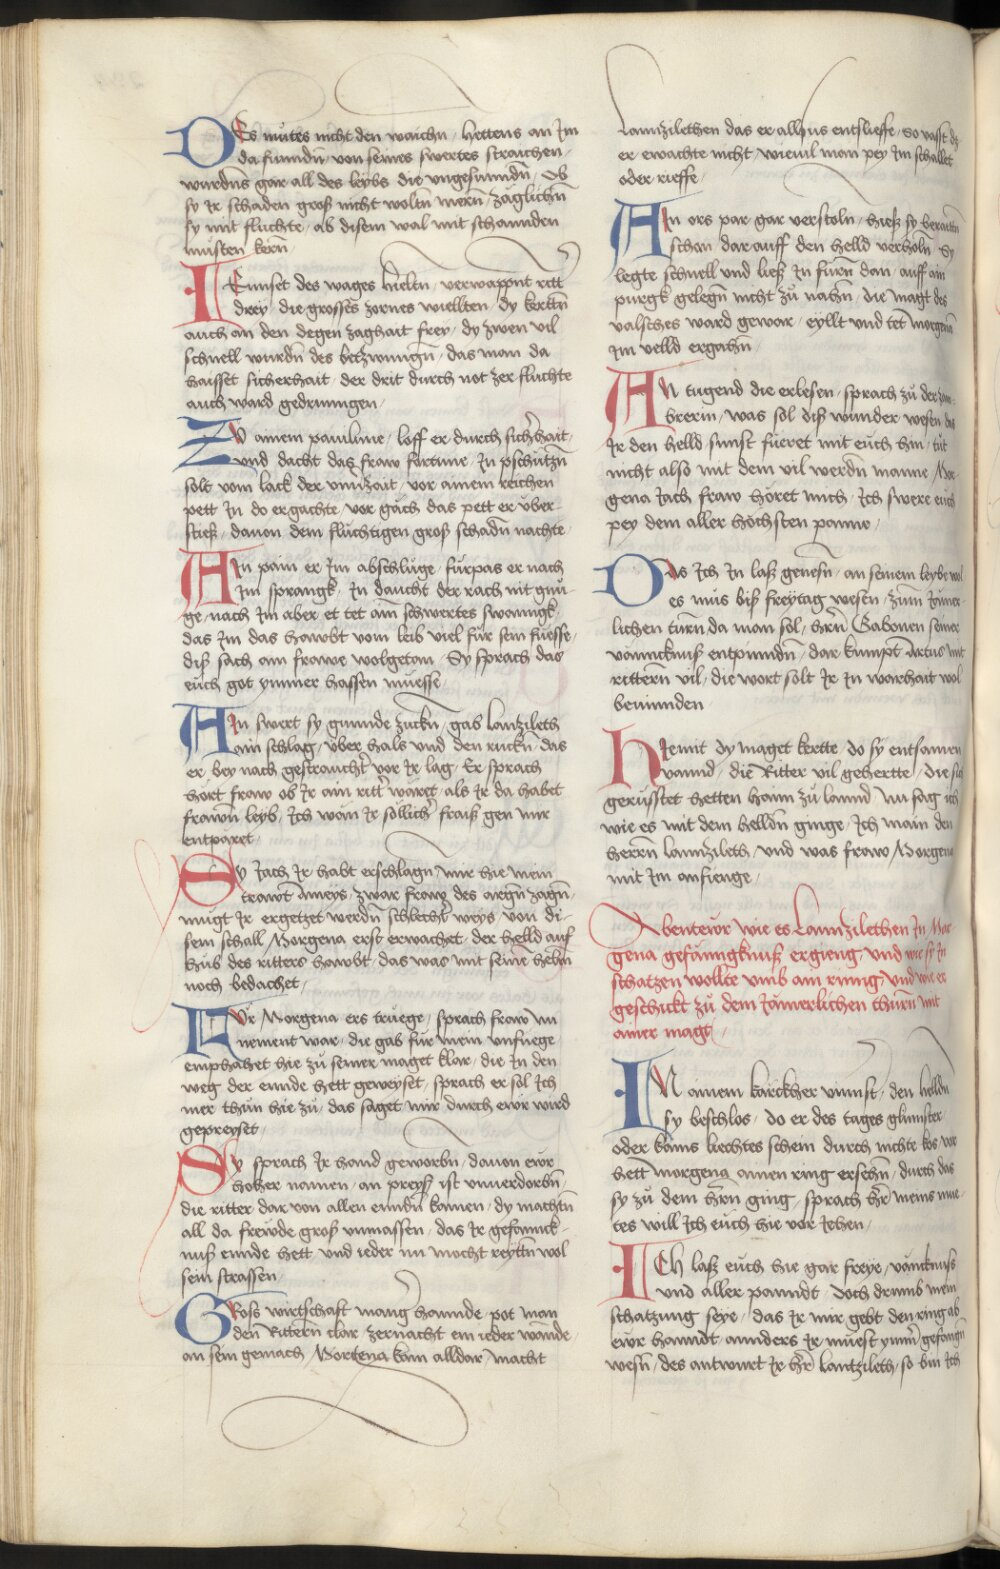 DEs mutes nicht den waichn / hettens an Im
da funndn / von seines swertes straichen /
wurdns gar all des leybs die ungesunndn / Ob
sy Ir schaden groß nicht woltn mern / zäglichn
sy mit fluchte / ab disem wal mit schannden
musten kern /
JEnnset des wages hieltn / verwappnt ritt
drey / die grosses zornes wiellten / dy kerttn
auch an den degen zaghait frey / dy zwen vil
schnell wurdn des betzwungn / das man da
haisset sicherhait / der drit durch not zer fluchte
auch ward gedrungen /
ZV ainem paulune / loff er durch sicherhait /
vnd dacht das fraw fortune / In pschutzn
solt vom lack der vnnzait / vor ainem reichen
pett In do ergachte / vor gäch das pett er über
stieß / dauon dem fluchtigen groß schadn nachte /
AIn pain er Im abschlüge / fürpas er nach
Im sprangk / In daucht der rach nit gnü
ge / nach Im aber et tet ain schwertes swanngk /
das Im das hawbt vom leib viel für sein fuesse /
diß sach ain frawe wolgetan / Sy sprach das
euch got ymmer hassen muesse /
AIn swert sy gunnde zuckn / gab lanzileth
ain schlag / über hals vnd den ruckn / das
er bey nach gestraucht vor Ir lag / Er sprach
hort fraw ob Ir ain ritter waret / als Ir da habet
frawen leyb / Ich wän Ir sollich fraiß gen mir
entparet /
SY Jach Ir habt erschlagn / mir hie mein
trawt Ameys / zwar fraw des argn zagn /
mügt Ir ergetzet werdn schlecht weys / von di-
sem schall Morgena erst erwachet / der helld auf
hub des ritters hawbt / das was mit seine helm
noch bedachet /
FVr Morgena ers truege / sprach fraw nu
nement war / die gab für mein vnfuege
emphahet hie zu seiner maget klar / die In den
weg der ennde hett geweyset / sprach er sol Ich
mer thun hie zu / das saget mir durch ewr wird
gepreyset /
SY sprach Ir hand geworbn / dauon ewr
hoher namen / an preyß ist vnuerdorbn /
die ritter dar von allen enndn kamen / dy machtn
all da freude groß vnmassen / das Ir gefannck-
nuß ennde hett / vnd ieder nu mocht reyttn wol
sein strassen /
GRoss wirtschaft mang hannde / pot man
den Rittern clar / zernacht ein ieder wande /
an sein gemach / Morgena kam alldar / macht
Lannzilethen das er allsus entslieffe / so vasst dz
er erwachte nicht / wievil man pey Im schallet
oder rieffe /
AIn ors par gar verstoln / hieß sy beraittn
schon / dar auff den helld verholn / Sy
legte schnell vnd ließ In fürn dan / auff ain
purgk gelegn nicht zu nachn / die magt des
valsches ward gewar / eyllt vnd tet Morgena
Im velld ergahn /
AN tugend die erlesen / sprach zu der zau-
brerin / was sol diß wunder wesen / das
Ir den helld sunst füeret mit euch hin / tüt
nicht also mit dem vil werdn manne / Mor
gena Jach fraw höret mich / Ich swere euch
pey dem aller höchsten panne /
DAs Ich In laß genesn / an seinem leybe wol
es mus biß freytag wesen / zum Jämer-
lichen turn da man sol / hern Gabonen seiner
vänncknuß entpinndn / dar kumpt Artus mit
rittern vil / die wort solt Ir In warhait wol
beuinnden
HIemit dy maget kertte / do sy entsamen
vannd / die Ritter vil gehertte / die sich
gerüsstet hetten haim zu lannd / Nu sag ich
wie es mit dem helldn ginge / Ich main den
herrn lannzileth / vnd was fraw Morgena
mit Im anfienge /
Abentewr wie es Lannzilethen In Mor
gena gefänngknuß ergieng / vnd wie sy In
schatzen wollte vmb ain rinng / vnd wie er
geschickt zu dem Jämerlichen thurn mit
ainer magt /
IN ainem karckher vinnst / den helldn
sy beschlos / do er des tages glinnster /
oder kains liechtes schein durch nichte kos / vor
hett Morgena ainen ring ersehn / durch das
sy zu dem hrn ging / sprach her meins mue-
tes will Ich euch hie vor Jehen /
ICh laß euch hie gar freye / vänncknuß
vnd aller panndt / doch drumb mein
schatzung seye / das Ir mir gebt den ring ab
ewr hanndt / annders Ir muest ymmr gefangn
wesn / des antwurt Ir her lantzileth / so bin Ich